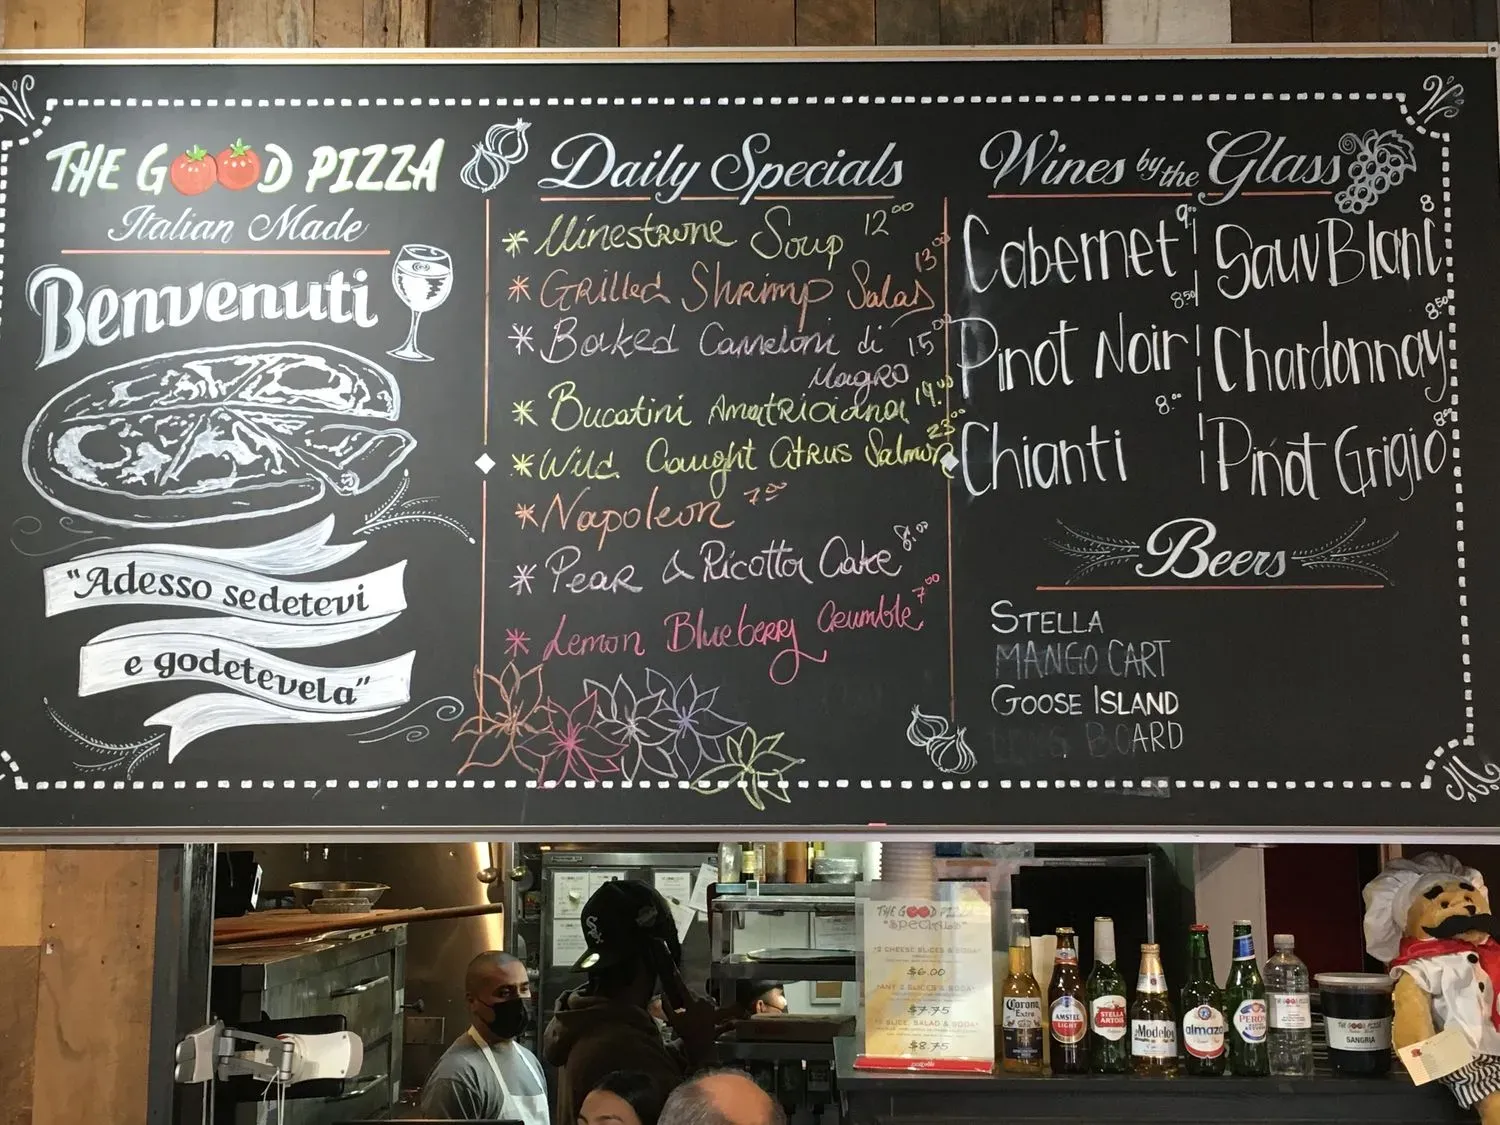 THE GOOD PIZZA
Italian Made
Benvenuti
"Adesso sedetevi
e godetevela"
Daily Specials
* Minestrone Soup 12.00
* Grilled Shrimp Salad 13.00
* Baked Canneloni di 15.00
Magro
* Bucatini Amatriciana 19.00
* Wild Caught Citrus Salmon 23.00
* Napoleon 7.00
* Pear & Ricotta Cake 8.00
* Lemon Blueberry Crumble 7.00
Wines by the Glass
Cabernet 9.00
Pinot Noir 8.50
Chianti 8.00
Sauv Blanc 8
Chardonnay 8.50
Pinot Grigio 8.00
Beers
STELLA
MANGO CART
GOOSE ISLAND
LONG BOARD
THE GOOD PIZZA
"SPECIALS"
"2 CHEESE SLICES & SODA"
$6.00
"ANY 2 SLICES & SODA"
$7.75
"1 SLICE, SALAD & SODA"
$8.75
Corona
Extra
AMSTEL
LIGHT
STELLA
ARTOIS
Modelo
almaza
PERONI
THE GOOD PIZZA
SANGRIA